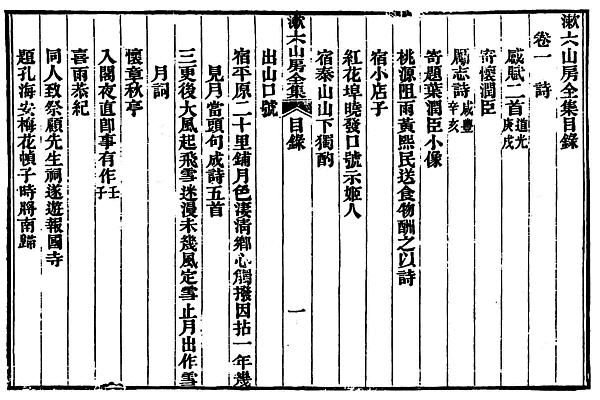 漱六山房全集目錄
卷一 詩
感賦二首道光庚戌
寄懷潤臣
厲志詩咸豐辛亥
寄題葉潤臣小像
桃源阻雨黃熙民送食物酬之以詩
宿小店子
紅花埠曉發口號示姬人
宿泰山山下獨酌
漱六山房全集 目錄 一
出山口號
宿平原二十里鋪月色淒清鄉心觸撥因拈一年幾
見月當頭句成詩五首
三更後大風起飛雪迷漫未幾風定雪止月出作雪
月詞
懷章秋亭
入闈夜直卽事有作壬子
喜雨恭紀
同人致祭顧先生祠遂遊報國寺
題孔海安梅花幀子時將南歸